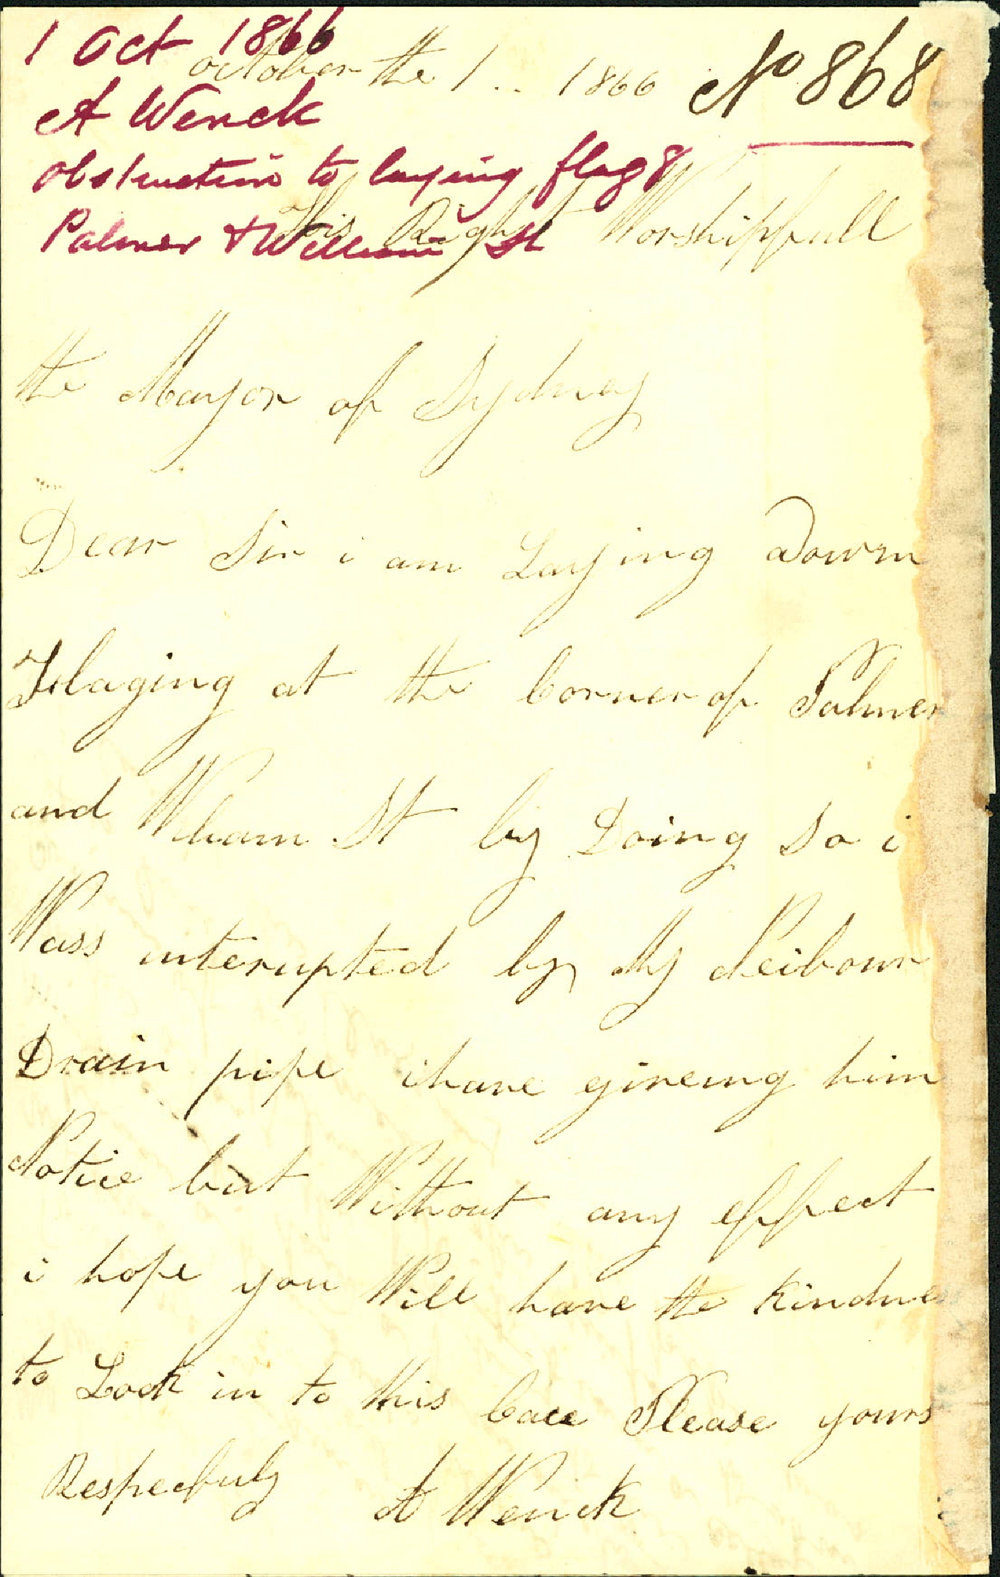 1 Oct 1866
october the 1 .. 1866
No 868
A Wenck
Obstruction to laying flags
Palmer & William St
His Right Worshipfull
the Mayor of Sydney
Dear Sir i am Laying Down
Flaging at the Corner of Palmer
and Wliam St by Doing So i
Wass interupted by My Neibour
Drain pipe i have giveing him
Notice but Without any effect
i hope you Will have the Kindne
to Look in to this Cace Please yours
Respecfuly A Wenck